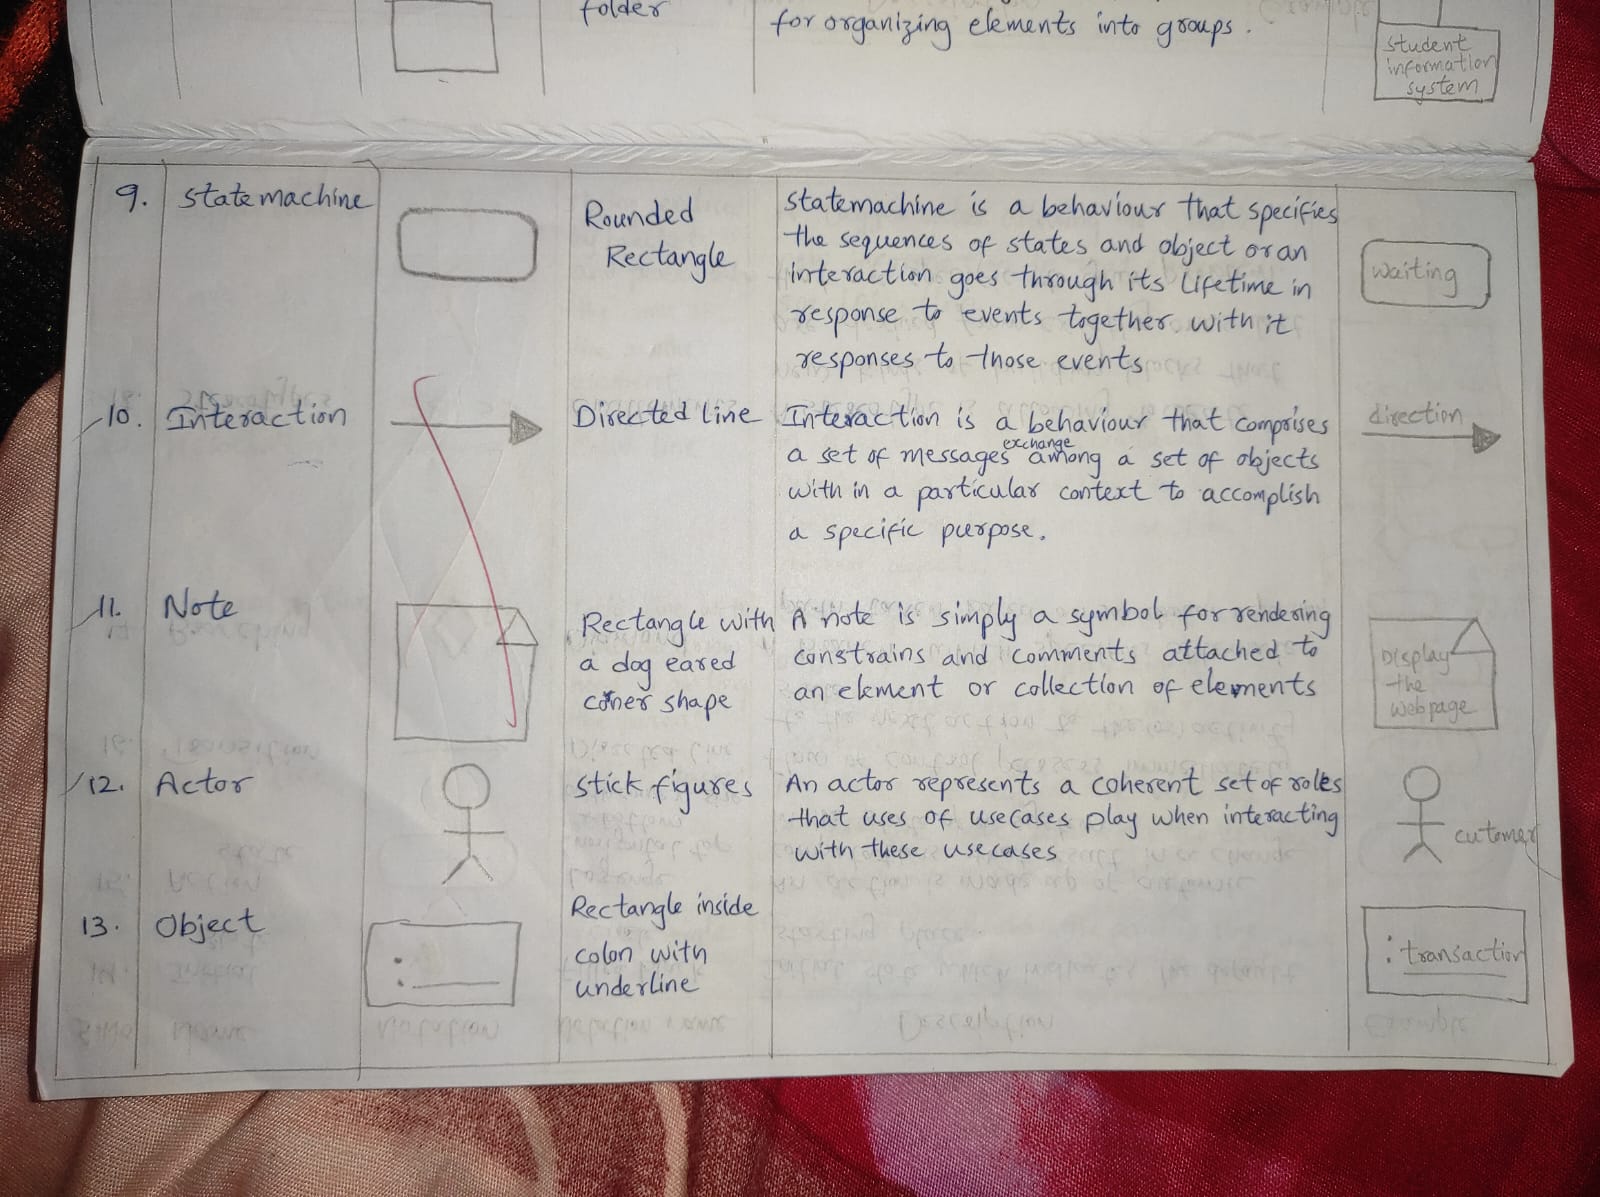 folder
for organizing elements into groups.
student
information
system
9. statemachine
Rounded
Rectangle
statemachine is a behaviour that specifies
the sequences of states and object or an
interaction goes through its lifetime in
response to events together with it
responses to those events
waiting
10. Interaction
Directed line
Interaction is a behaviour that comprises
a set of messages exchange among a set of objects
with in a particular context to accomplish
a specific purpose.
direction
11. Note
Rectangle with
a dog eared
corner shape
A note is simply a symbol for rendering
constrains and comments attached to
an element or collection of elements
Display
the
webpage
12. Actor
stick figures
An actor represents a coherent set of roles
that uses of usecases play when interacting
with these usecases
cutomer
13. Object
:
Rectangle inside
colon with
underline
: transaction